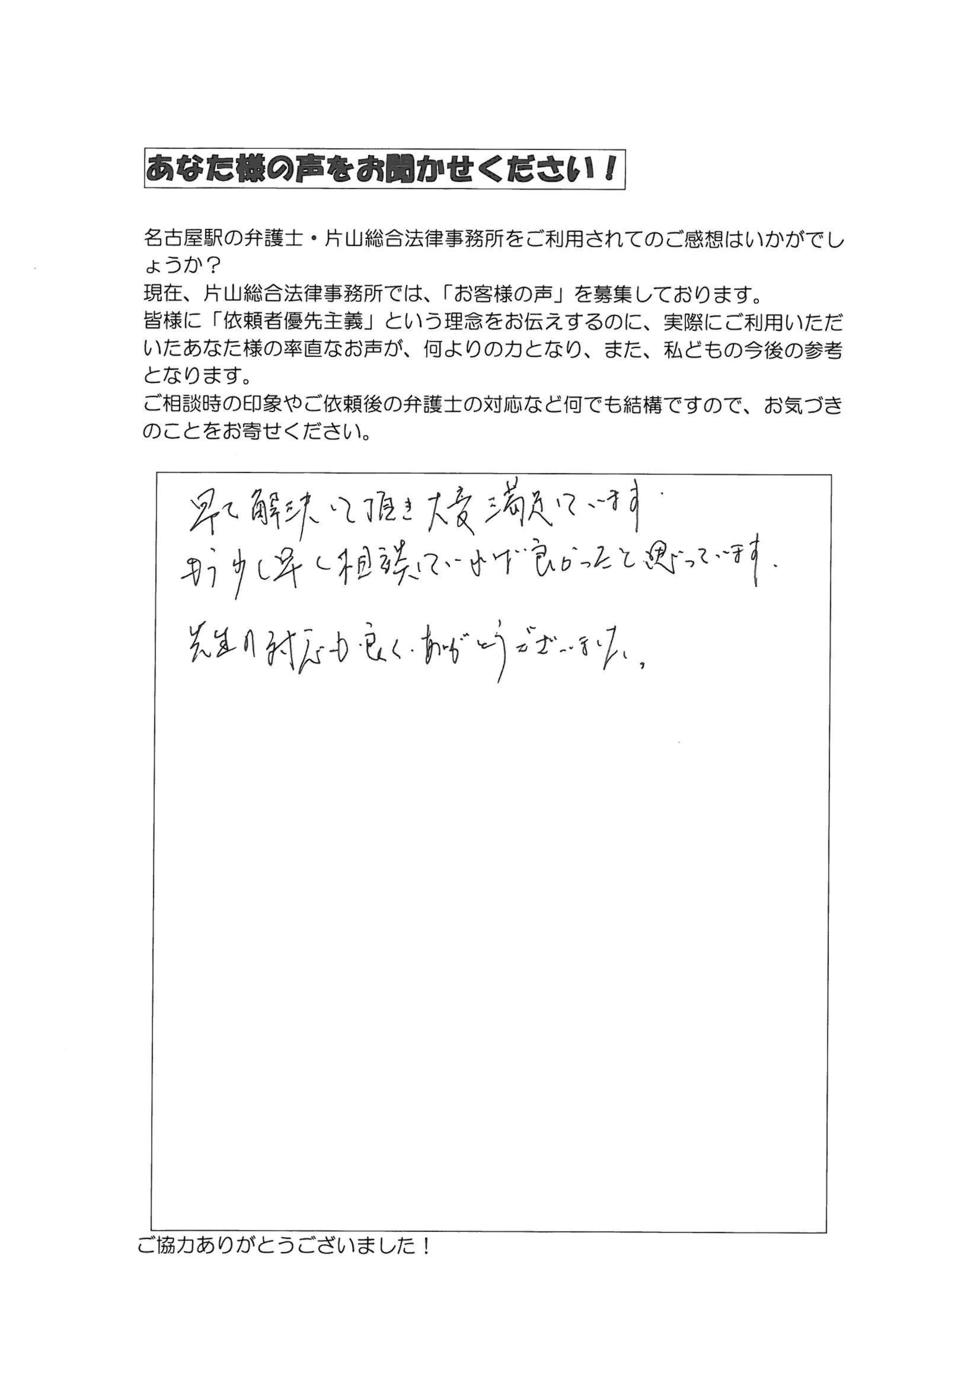 あなた様の声をお聞かせください！
名古屋駅の弁護士・片山総合法律事務所をご利用されてのご感想はいかがでし
ょうか？
現在、片山総合法律事務所では、「お客様の声」を募集しております。
皆様に「依頼者優先主義」という理念をお伝えするのに、実際にご利用いただ
いたあなた様の率直なお声が、何よりの力となり、また、私どもの今後の参考
となります。
ご相談時の印象やご依頼後の弁護士の対応など何でも結構ですので、お気づき
のことをお寄せください。
早く解決して頂き大変満足しています.
もう少し早く相談していれば良かったと思っています.
先生の対応も良く.ありがとうございました。
ご協力ありがとうございました！